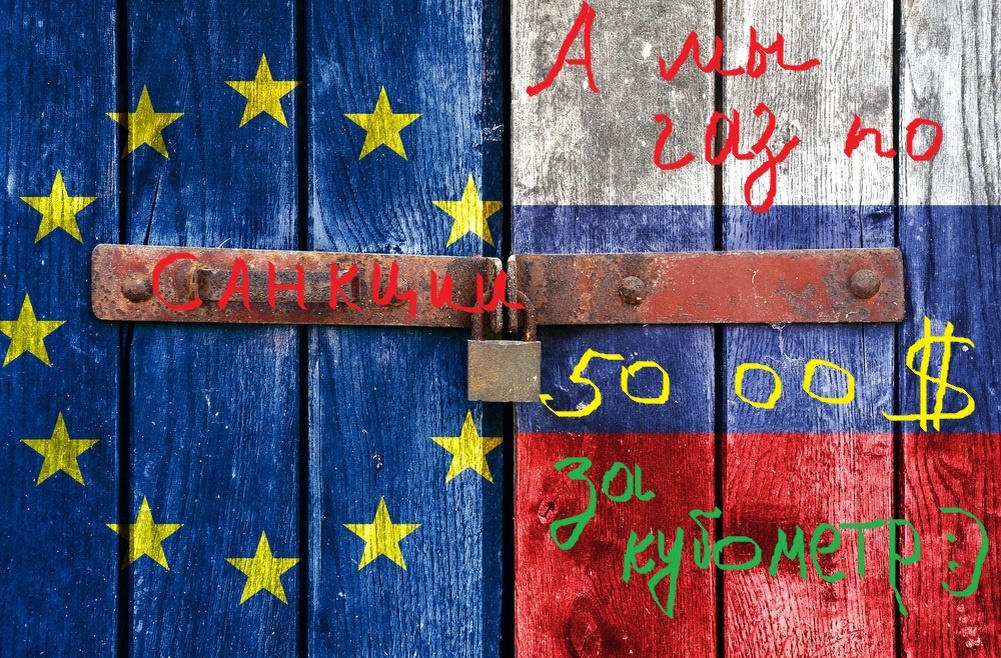 А мы
газ по
Санкции
50 00 $
за
кубометр :)